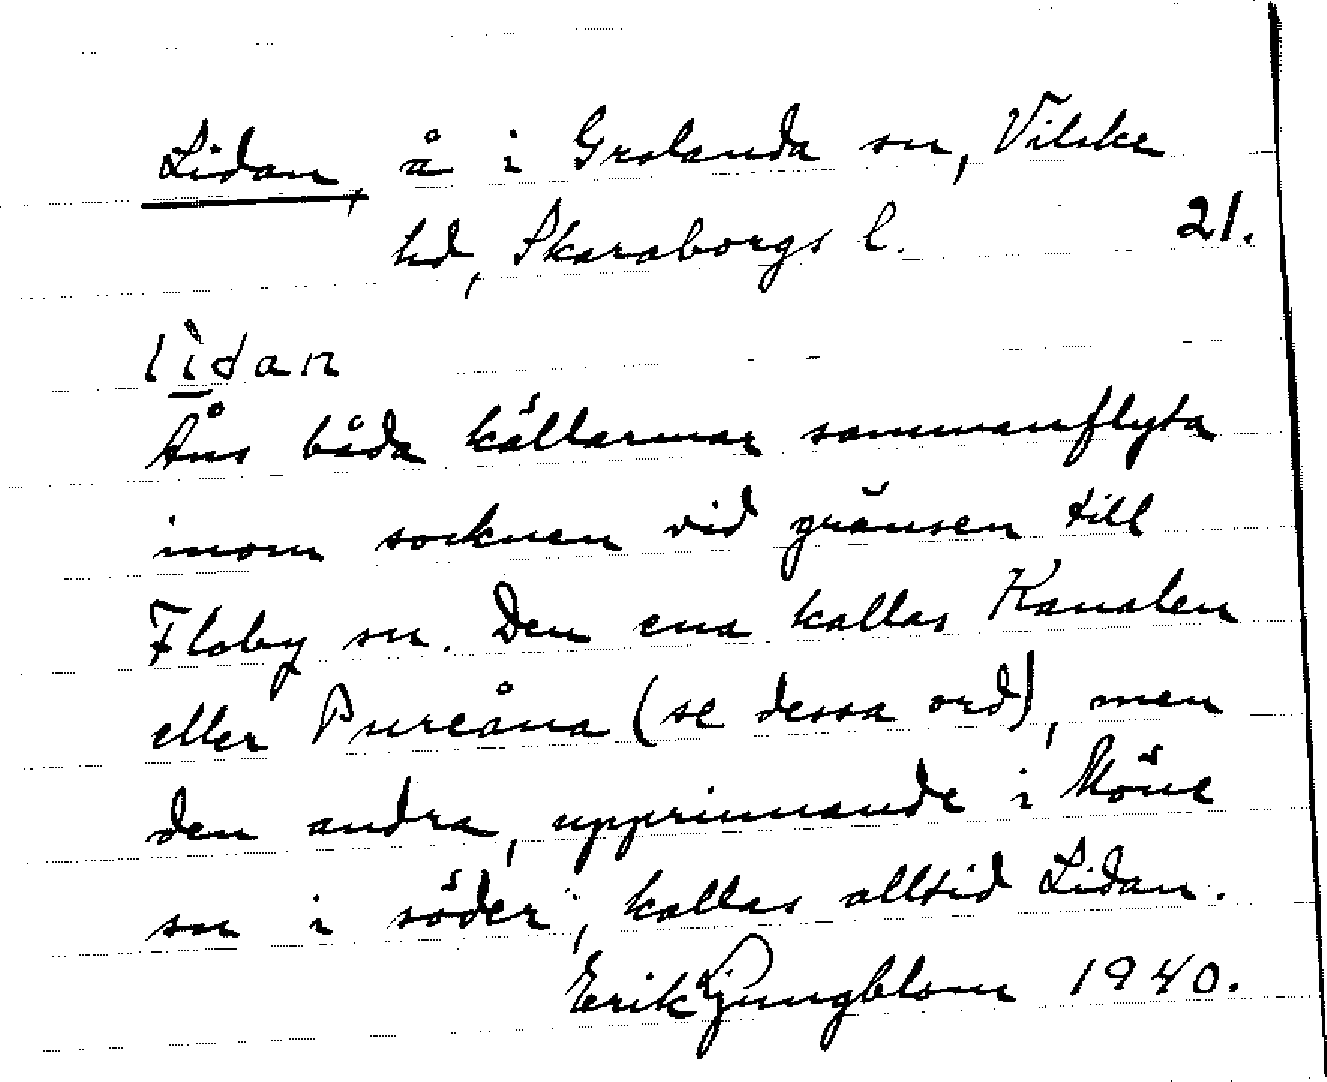 Lidan, å i Grolanda sn, Vilske
hd, Skaraborgs l. 21.
lì̱dan
Åns båda källarmar sammanflyta
inom socknen vid gränsen till
Floby sn. Den ena kallas Kanalen
eller Pureåna (se dessa ord), men
den andra, upprinnande i Möne
sn i söder, kallas alltid Lidan.
Erik Ljungblom 1940.